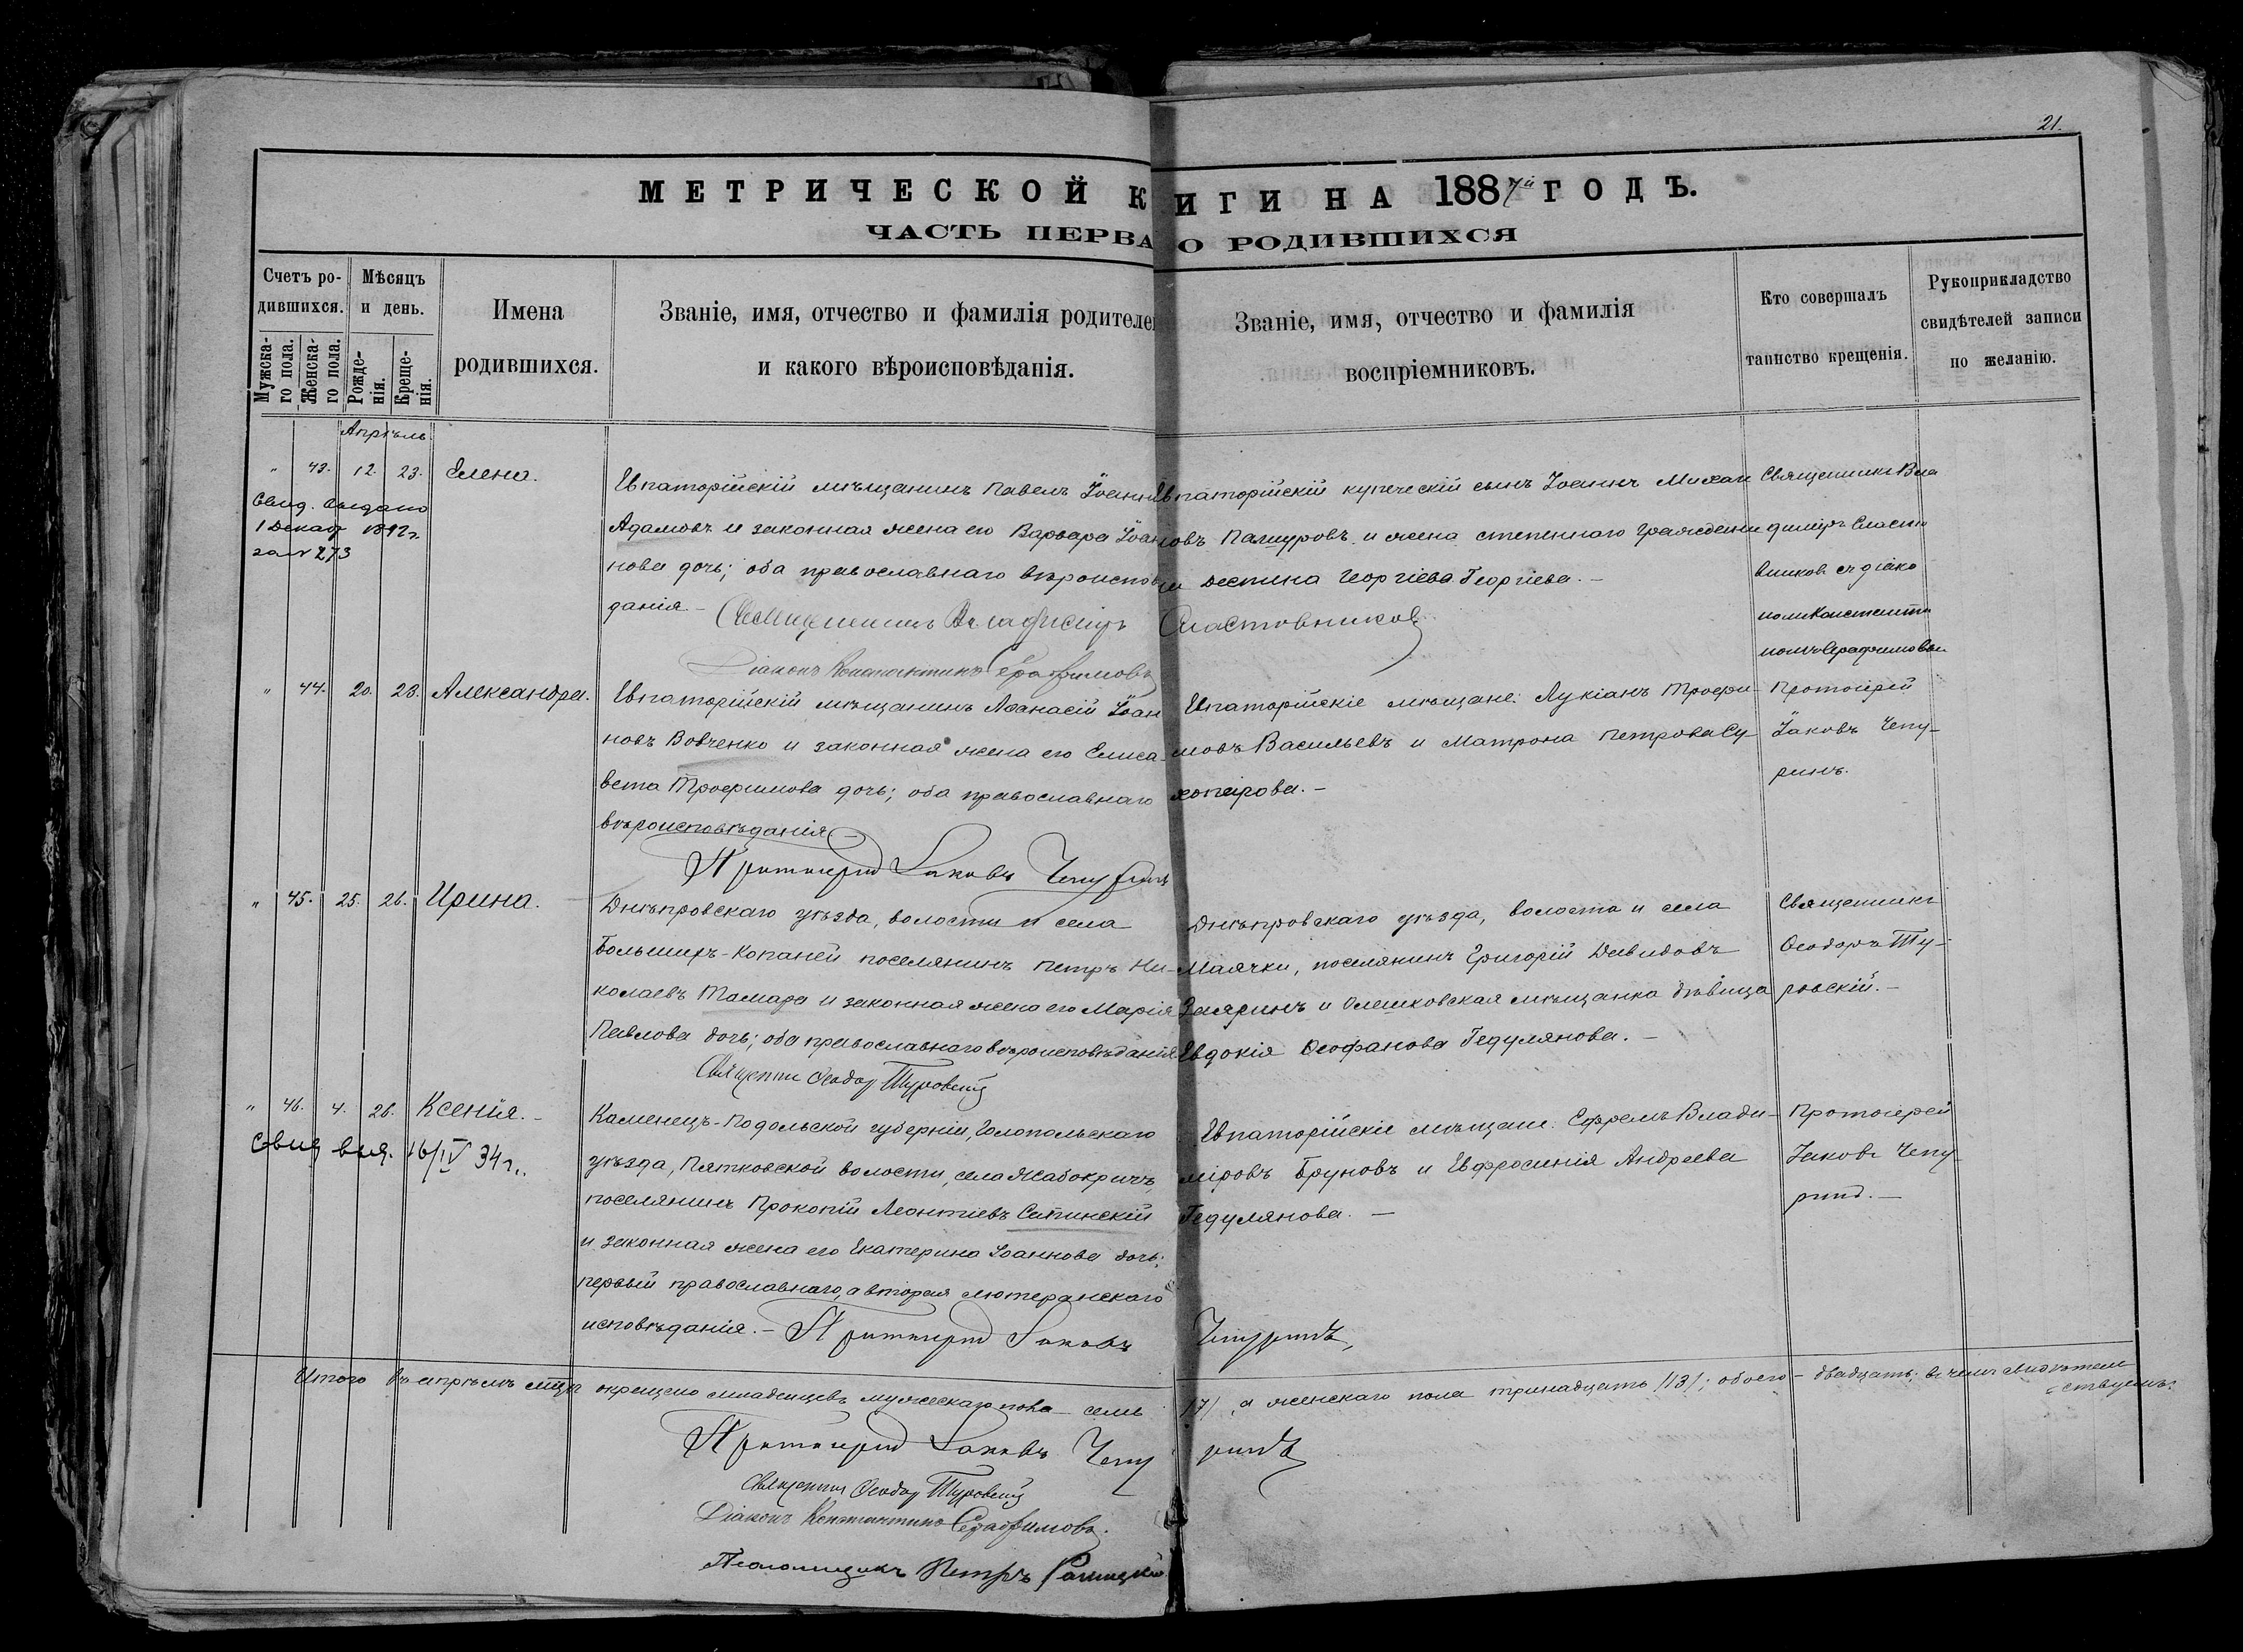 21.
МЕТРИЧЕСКОЙ К ИГИ НА 1887й ГОДЪ.
ЧАСТЬ ПЕРВА О РОДИВШИХСЯ
Счетъ ро-
дившихся.
Мужска-
го пола.
Женска-
го пола.
Мѣсяцъ
и день.
Рожде-
нія.
Креще-
нія.
Имена
родившихся.
Званіе, имя, отчество и фамилія родителе
и какого вѣроисповѣданія.
Званіе, имя, отчество и фамилія
воспріемниковъ.
Кто совершалъ
таинство крещенія.
Рукоприкладство
свидѣтелей записи
по желанію.
Апрѣль
" 43. 12. 23. Елена.
Свид. выдано
1 Декаб 1892 г.
за № 273
Евпаторійскій мѣщанинъ Павелъ Іоанн
Адамовъ и законная жена его Варвара Іоан
нова дочь; оба православнаго вѣроисповѣ
данія. – Священникъ Владиміръ Сластовников
Діаконъ Константинъ Серафимовъ
Евпаторійскій купеческій сынъ Іоаннъ Михаи
овъ Пашуровъ и жена степеннаго гражданин
Георгіева Георгіева. –
Священникъ Вла
диміръ Сласто
вников съ діако
номъ Константи
номъ Серафимовы
" 44. 20. 23. Александра.
Евпаторійскій мѣщанинъ Аѳанасій Іоан
новъ Вовченко и законная жена его Елиса-
вета Трофимова дочь; оба православнаго
вѣроисповѣданія –
Протоіерей Іаковъ Чепуринъ
Евпаторійскіе мѣщане: Лукіанъ Трофи-
мовъ Васильевъ и Матрона Петрова Су-
хопарова. –
Протоіерей
Іаковъ Чепу-
ринъ.
" 45. 25. 26. Ирина.
Днѣпровскаго уѣзда, волости и села
Большихъ-Копаней поселянинъ Петръ Ни-
колаевъ Тамара и законная жена его Марія
Павлова дочь; оба православнаго вѣроисповѣданія
Священник Ѳеодор Туровскій
Днѣпровскаго уѣзда, волости и села
Маячки, поселянинъ Григорій Давидовъ
и Олешковская мѣщанка дѣвица
Евдокія Ѳеофанова Гедулянова. –
Священникъ
Ѳеодоръ Ту-
ровскій. –
" 46. 4. 26. Ксенія. –
Свид выд. 16/IV 34 г.
Каменецъ-Подольской губерніи, Гопольскаго
уѣзда, Пятковской волости, села Жабокричъ,
поселянинъ Прокопій Леонтіевъ Сатинскій
и законная жена его Екатерина Іоаннова дочь;
первый православнаго, а вторая лютеранскаго
исповѣданія. – Протоіерей Іаковъ Чепуринъ
Евпаторійскіе мѣщане: Ефремъ Влади-
міровъ Бруновъ и Евфросинія Андреева
Гедулянова. –
Протоіерей
Іаковъ Чепу-
ринъ. –
Итого въ апрѣлѣ мцѣ окрещено младенцевъ мужескаго пола – семь /7/, а женскаго пола тринадцать /13/; обоего – двадцать, въ чемъ свидѣтель
ствуемъ:
Протоіерей Іаковъ Чепуринъ
Священник Ѳеодор Туровскій
Діаконъ Константинъ Серафимовъ.
Псаломщикъ Петръ